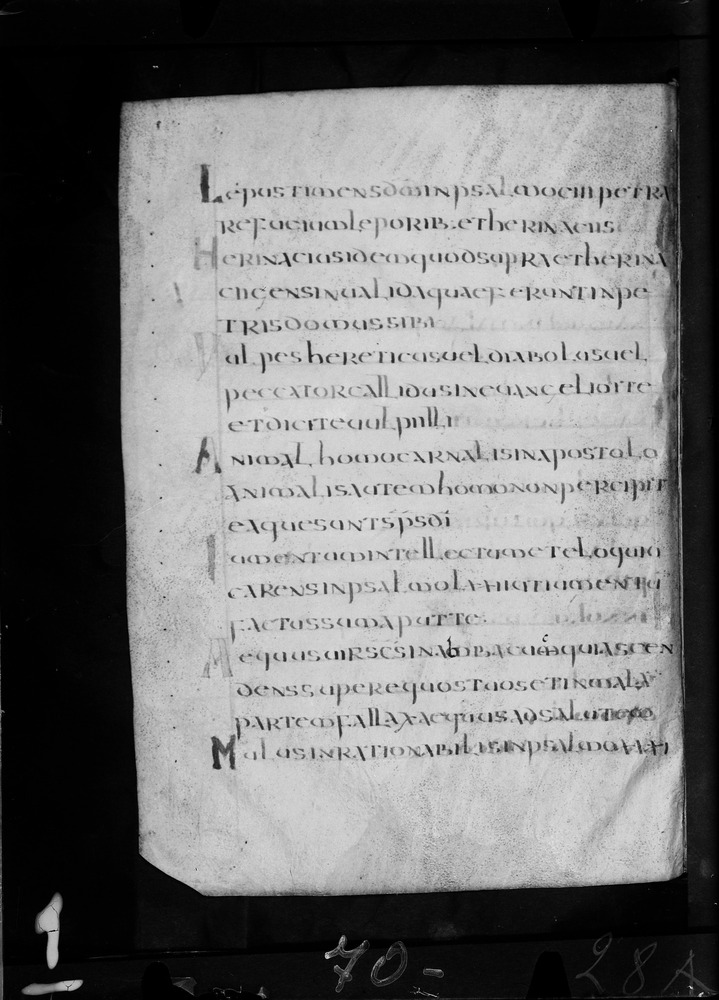 Lepus timens dm in psalmo ciii petra
refugium leporib. et herinaciis
Herinacius idem quod supra et herina
cii gens inualida quae fecerunt in pe
tris domus sibi
Vulpes hereticus uel diabolus uel
peccator callidus in euangelio ite
et dicite uulpi illi
Animal homo carnalis in apostolo
animalis autem homo non percipit
ea que sunt sps di
Iumentum intellectum et eloquio
carens in psalmo iumentu
factus sum aput te
Aequus uir scs in abbacum quia scen
dens super equos tuos et in mala
partem fallax aequus ad salutem
Mulus inrationabilis in psalmo xxxi
70-
28A